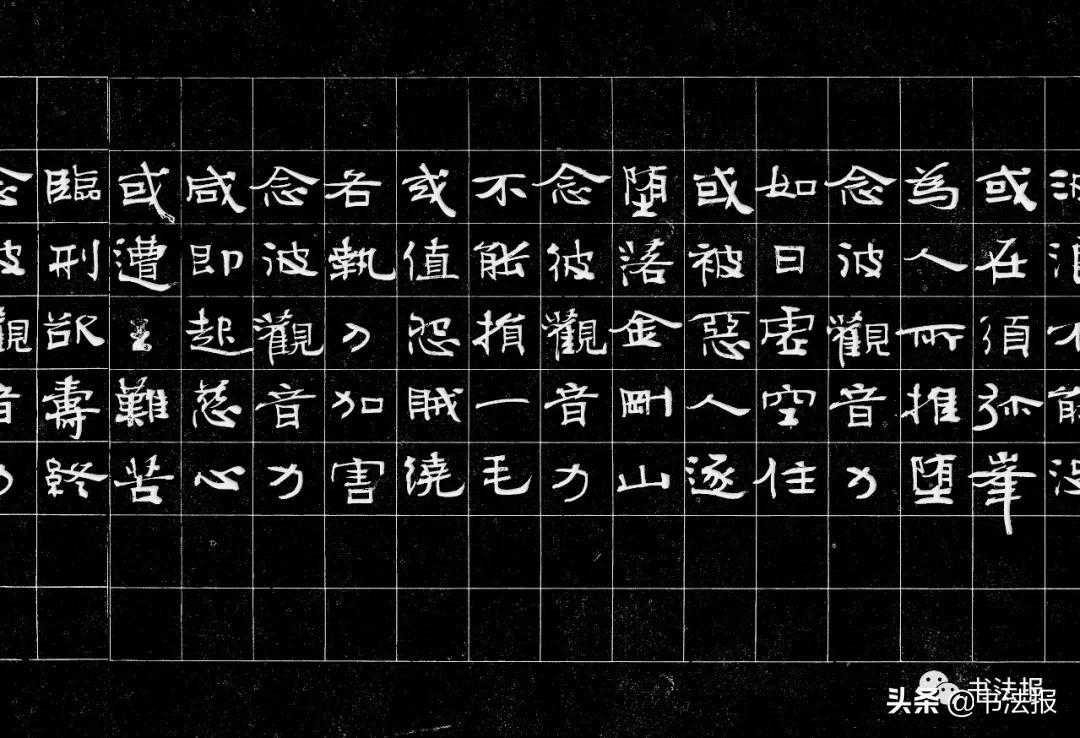 或在須弥峯
為人所推堕
念波觀音力
如日虚空住
或被惡人逐
堕落金剛山
念彼觀音力
不能損一毛
或值怨賊繞
各執刀加害
念波觀音力
咸即起慈心
或遭王難苦
臨刑欲壽終
书法报
头条 @书法报